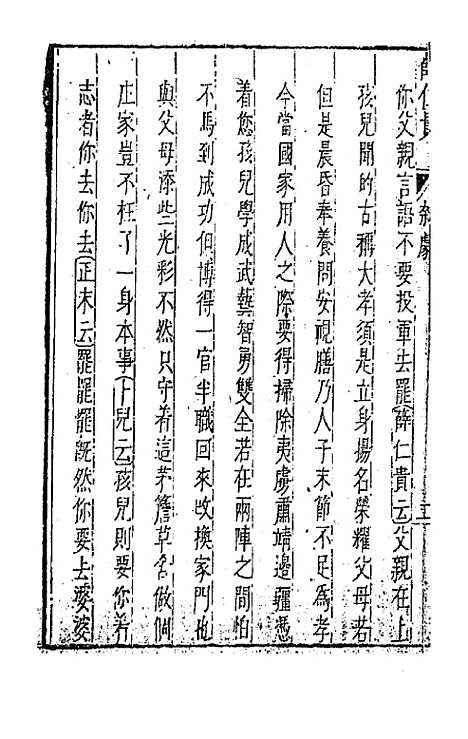 薛仁貴
雜劇
你父親言語不要投軍去罷薛仁貴云父親在上
孩兒聞的古稱大孝須是立身揚名榮耀父母若
但是晨昏奉養問安視膳乃人子末節不足為孝
今當國家用人之際要得掃除夷虜肅靖邊疆憑
着您孩兒學成武藝智勇雙全若在兩陣之間怕
不馬到成功但博得一官半職回來改換家門也
與父母添些光彩不然只守着這茅簷草舍做個
庄家豈不枉了一身本事卜兒云孩兒則要你着
志者你去你去正末云罷罷罷既然你要去婆婆